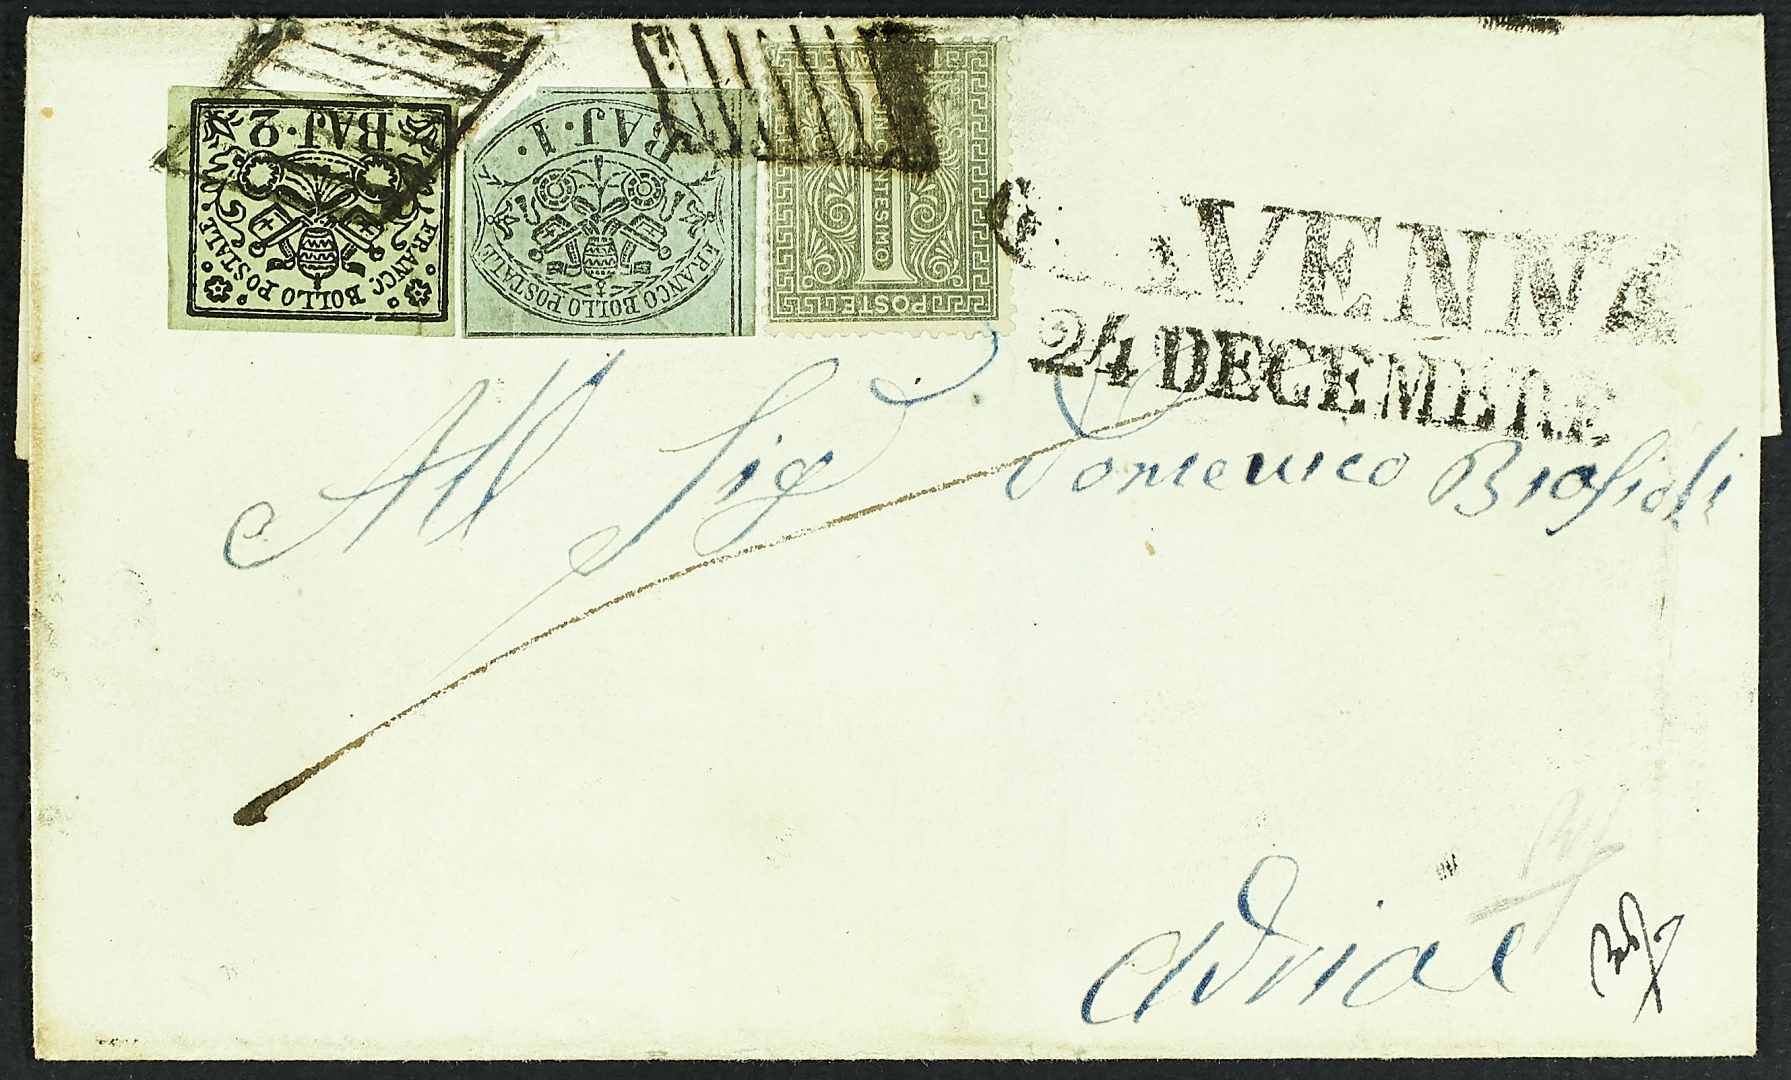 BAJ. 2
FRANCO BOLLO POSTALE
BAJ. 1.
FRANCO BOLLO POSTALE
1
UN CENTESIMO
POSTE
RAVENNA
24 DECEMBRE
All Sig Domenico
Adria